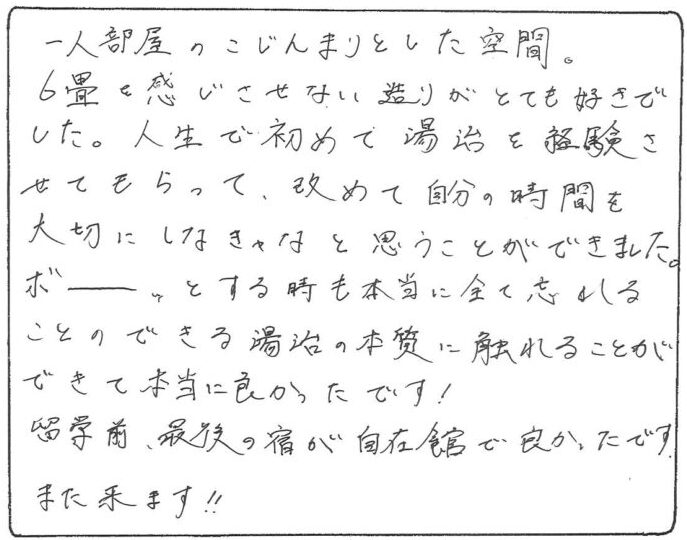 一人部屋のこじんまりとした空間。
6畳を感じさせない造りがとても好きで
した。人生で初めて湯治を経験さ
せてもらって、改めて自分の時間を
大切にしなきゃなと思うことができました。
ボーーーッとする時も本当に全て忘れる
ことのできる湯治の本質に触れることが
できて本当に良かったです!
留学前、最後の宿が自在館で良かったです
また来ます!!